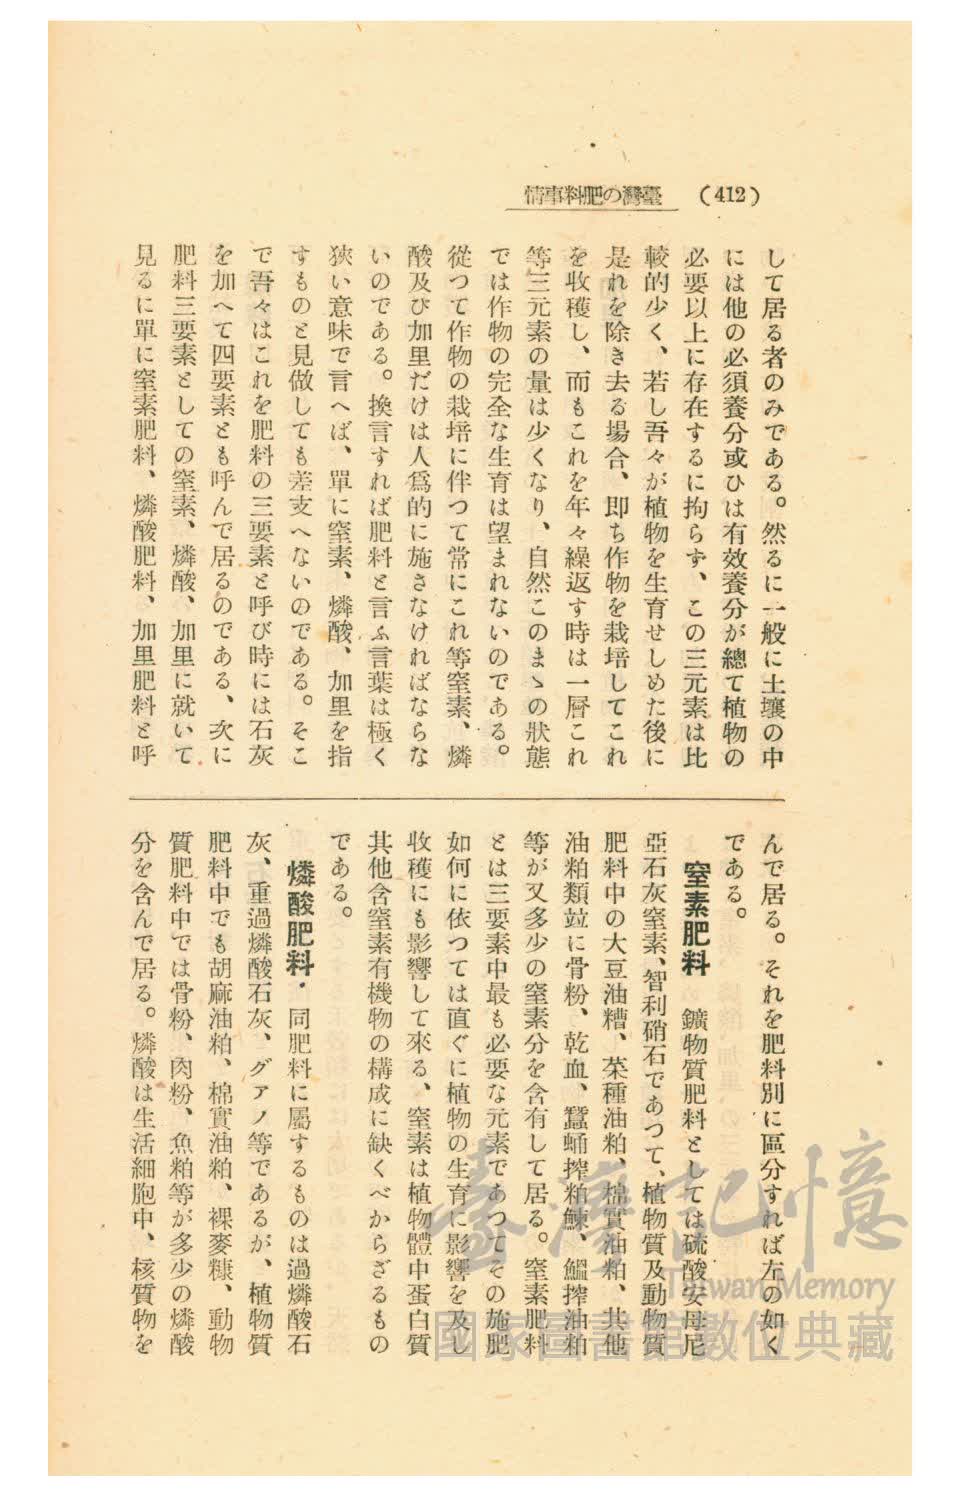 (412) 臺灣の肥料事情
して居る者のみである。然るに一般に土壤の中
には他の必須養分或ひは有效養分が總て植物の
必要以上に存在するに拘らず、この三元素は比
較的少く、若し吾々が植物を生育せしめた後に
是れを除き去る場合、即ち作物を栽培してこれ
を收穫し、而もこれを年々繰返す時は一層これ
等三元素の量は少くなり、自然このまゝの狀態
では作物の完全な生育は望まれないのである。
從つて作物の栽培に伴つて常にこれ等窒素、燐
酸及び加里だけは人爲的に施さなければならな
いのである。換言すれば肥料と言ふ言葉は極く
狹い意味で言へば、單に窒素、燐酸、加里を指
すものと見做しても差支へないのである。そこ
で吾々はこれを肥料の三要素と呼び時には石灰
を加へて四要素とも呼んで居るのである、次に
肥料三要素としての窒素、燐酸、加里に就いて
見るに單に窒素肥料、燐酸肥料、加里肥料と呼
んで居る。それを肥料別に區分すれば左の如く
である。
窒素肥料 鑛物質肥料としては硫酸安母尼
亞石灰窒素、智利硝石であつて、植物質及動物質
肥料中の大豆油糟、菜種油粕、棉實油粕、其他
油粕類竝に骨粉、乾血、蠶蛹搾粕鰊、鰮搾油粕
等が又多少の窒素分を含有して居る。窒素肥料
とは三要素中最も必要な元素であつてその施肥
如何に依つては直ぐに植物の生育に影響を及し
收穫にも影響して來る、窒素は植物體中蛋白質
其他含窒素有機物の構成に缺くべからざるもの
である。
燐酸肥料・ 同肥料に屬するものは過燐酸石
灰、重過燐酸石灰、グアノ等であるが、植物質
肥料中でも胡麻油粕、棉實油粕、裸麥糠、動物
質肥料中では骨粉、肉粉、魚粕等が多少の燐酸
分を含んで居る。燐酸は生活細胞中、核質物を
臺灣記憶
Taiwan Memory
國家圖書館數位典藏